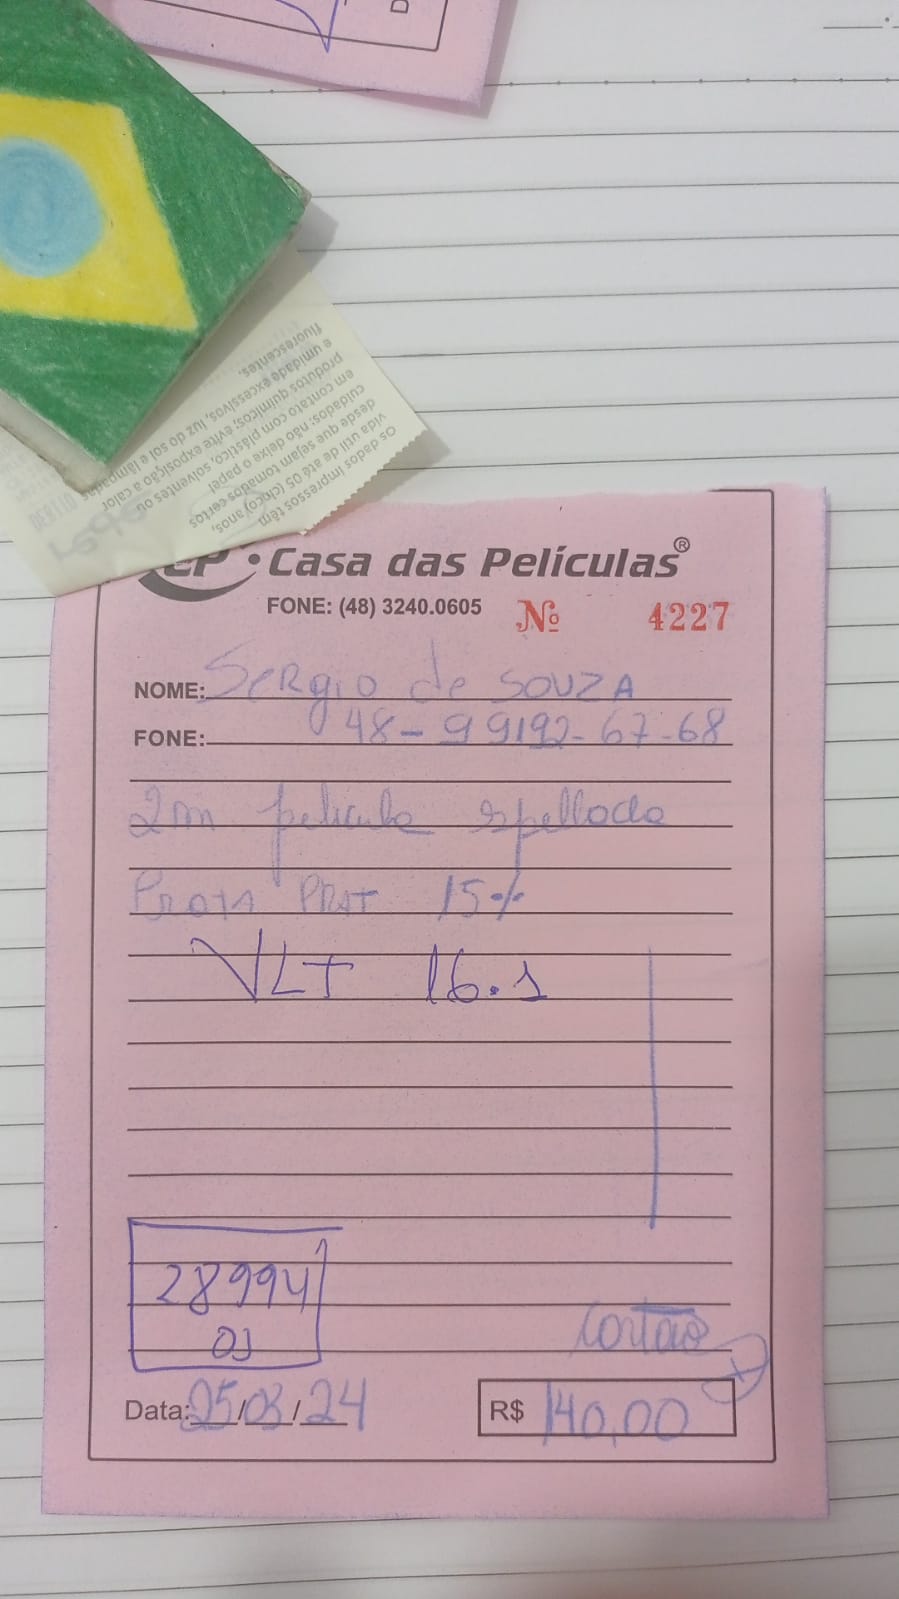 D
Os dados impressos têm
vida útil de até 05 (cinco) anos,
desde que sejam tomados certos
cuidados: não deixe o papel
em contato com plástico, solventes ou
produtos químicos; evite exposição a calor
e umidade excessivos, luz do sol e lâmpadas
fluorescentes.
rede
CP • Casa das Películas®
FONE: (48) 3240.0605 Nº 4227
NOME: Sergio de SOUZA
FONE: 48-99192-67-68
2m pelicula espellada
Prata PRAT 15%
VLT 16.1
28994
OS
Cartão
Data: 25/03/24 R$ 140,00